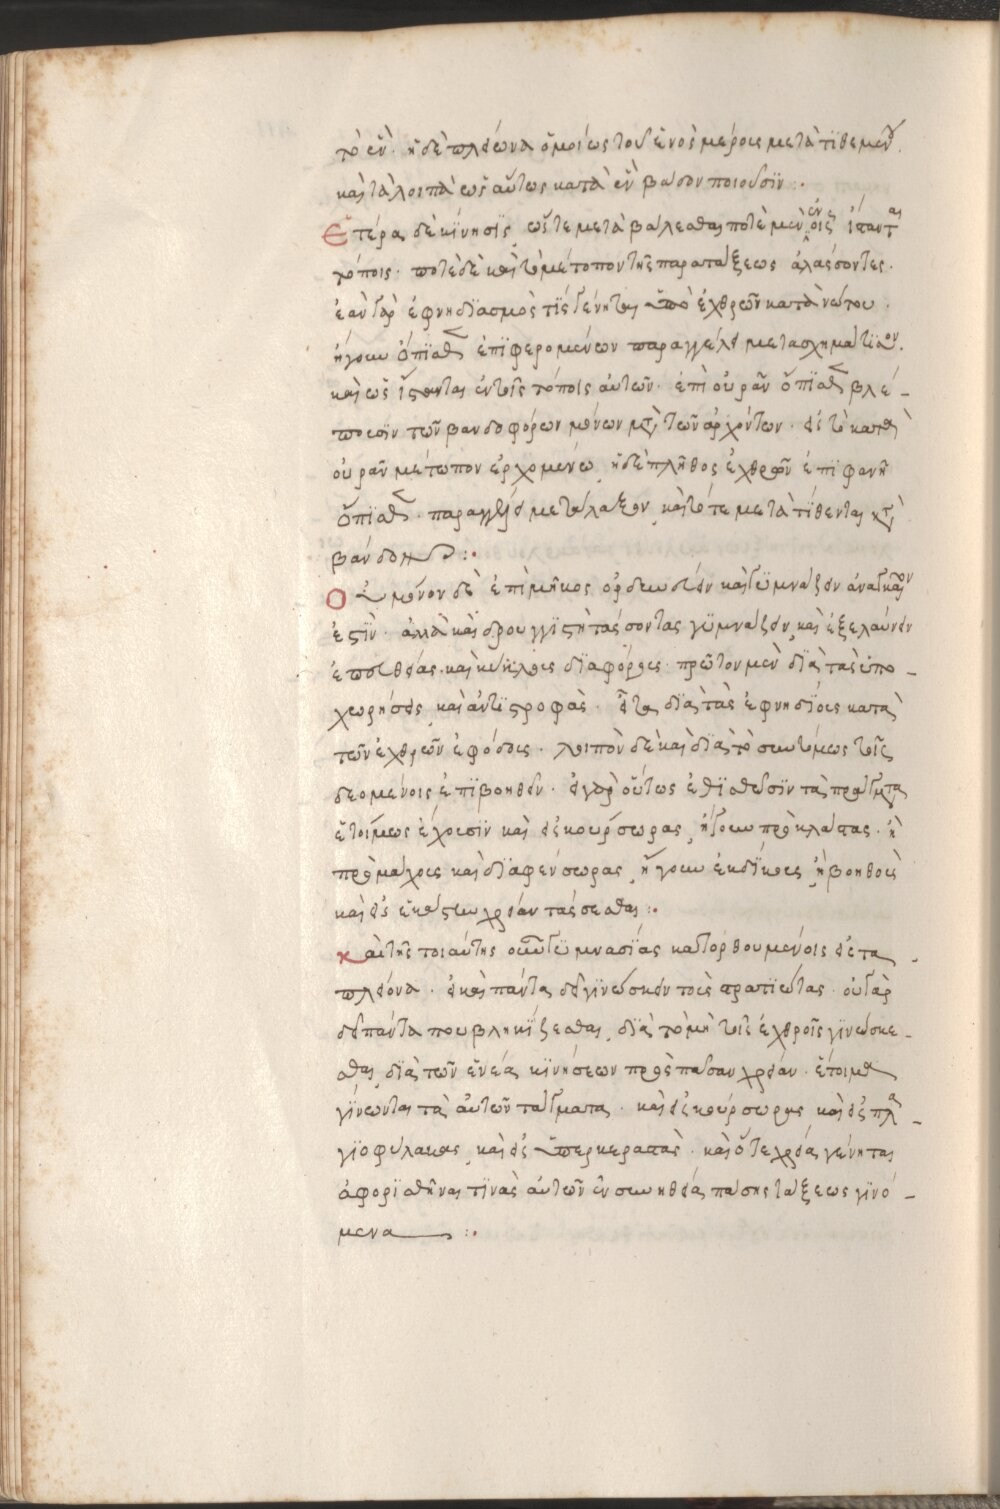 τὸ ἓν. ἢ δὲ πλείωνα ὁμοίως τοῦ ἑνὸς μέροις μετατιθεμένου.
καὶ τὰ λοιπὰ ὡσαύτως κατὰ ἓν βάνδον ποιοῦσϊν :.
Ἑτέρας δὲ κίνησϊς, ὥστε μεταβάλεσθαι ποτὲ μὲν ἐν οἷς ἵσταντας
τόποις. ποτὲ δὲ καὶ τὸ μέτοπον τῆς παρατάξεως ἀλαέσοντες.
ἐὰν γὰρ ἐφνηδϊασμὸς τϊς γένηται ὑπὸ ἐχθρῶν κατὰ νώτου.
ἤγουν ὄπϊσθεν ἐπϊφερομένων παραγγέλει μετασχημάτϊσον.
καὶ ὡς ἵστανται ἐν τοῖς τόποις αὐτῶν. ἐπὶ οὐρᾶν ὄπϊσθεν βλέ-
πουσϊν τῶν βανδοφόρων μόνων μετὰ τῶν ἀρχόντων. εἰ τὸ κατὰ
οὐρᾶν μέτωπον ἐρχομένω, ἢ δὲ πλῆθος ἐχθρῶν ἐπϊφανῆ
ὄπϊσθεν. παραγγέλει μετάλαξον, καὶ τότε μετατίθενται κατὰ
βάνδον :.
Οὐ μόνον δὲ ἐπὶ μῆκος ὀρδευωτεῖν καὶ γϋμνάζειν ἀναγκαῖον
ἐστϊν. ἀλλὰ καὶ δρουγγϊστὴ τάσοντας γϋμνάζειν, καὶ ἐξελαύνειν
ἐπ' εὐθείας, καὶ κύκλοις δϊαφόροις. πρῶτον μὲν δϊὰ τὰς ὑπο-
χωρήσεις, καὶ ἀντϊστροφὰς. εἶτα δϊὰ τὰς ἐφνηδίοις κατὰ
τῶν ἐχθρῶν ἐφόδοις. λοιπὸν δὲ καὶ δϊὰ τὸ συντόμως τοῖς
δεομένοις ἐπϊβοηθεῖν. εἰ γὰρ οὕτως ἐθϊσθῶσϊν τὰ πράγματα
ἑτοίμως ἔχουσϊν καὶ εἰς κούρσωρας, ἤγουν προκλάστας. ἢ
προμάχοις καὶ δϊαφένσωρας, ἤγουν ἐκδίκοις, ἢ βοηθοὶς
καὶ εἰς ἑκάστην χρείαν τάσεσθαι :.
Καὶ τῆς τοιαύτης οὖν γϋμνασίας κατορθουμένοις εἰς τα
πλείονα. εἰ καὶ πάντα δεῖ γϊνώσκειν τοὶς στρατϊώτας. οὐ γὰρ
δεῖ πάντα πουβληκϊζεσθαι, δϊὰ τὸ μὴ τοῖς ἐχθροῖς γϊνώσκε-
σθαι, δϊὰ τῶν ἐνέα κϊνήσεων πρὸς πᾶσαν χρείαν. ἕτοιμα
γίνωνται τὰ αὐτῶν τάγματα. καὶ εἰς κούρσωρης καὶ εἰς πλα-
γϊοφύλακας, καὶ εἰς ὑπερκεραστὰς. καὶ ὅτε χρεία γένηται
ἀφορϊσθῆναι τϊνὰς αὐτῶν ἐν συνηθεία πάσης τάξεως γϊνό-
μενα :.